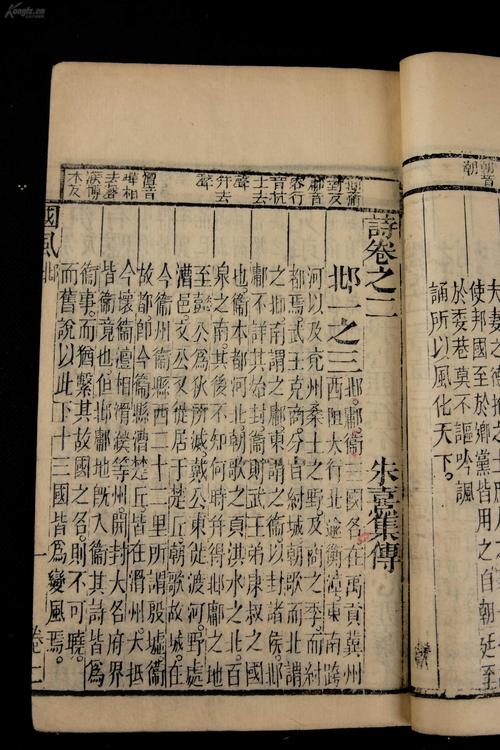 朝音
潮
使邦國至於鄉黨皆用之自朝廷至
於委巷莫不謳吟諷
誦所以風化天下。
邶蒲
對反
鄘音
容行
音杭
土去
聲
并去
聲
澶音
蟬相
去聲
濮博
木反
詩卷之二 朱熹集傳
邶一之三 邶鄘衛三國名在禹貢冀州
西阻大行北逾衡漳。東南跨
河以及兗州桑土之野及商之季。而紂
都焉武王克商。分自紂城朝歌而北謂
之邶南謂之鄘。東謂之衛。以封諸侯。邶
鄘不詳其始封。衛則武王弟康叔之國
也。衛本都河北。朝歌之東淇水之北百
泉之南。其後不知何時并得邶鄘之地
至懿公為狄所滅。戴公東徙渡河。野處
漕邑。文公又徙居于楚丘。朝歌故城。在
今衛州衛縣西二十二里所謂殷墟衛
故都即今衛縣漕楚丘。皆在滑州。大抵
今懷衛澶相滑濮等州。開封大名府界
皆衛竟也。但邶鄘地既入衛其詩皆為
衛事。而猶繫其故國之名。則不可曉。
而舊說以此下十三國皆為變風焉。
國風 邶
一 卷二
Kongfz.cn